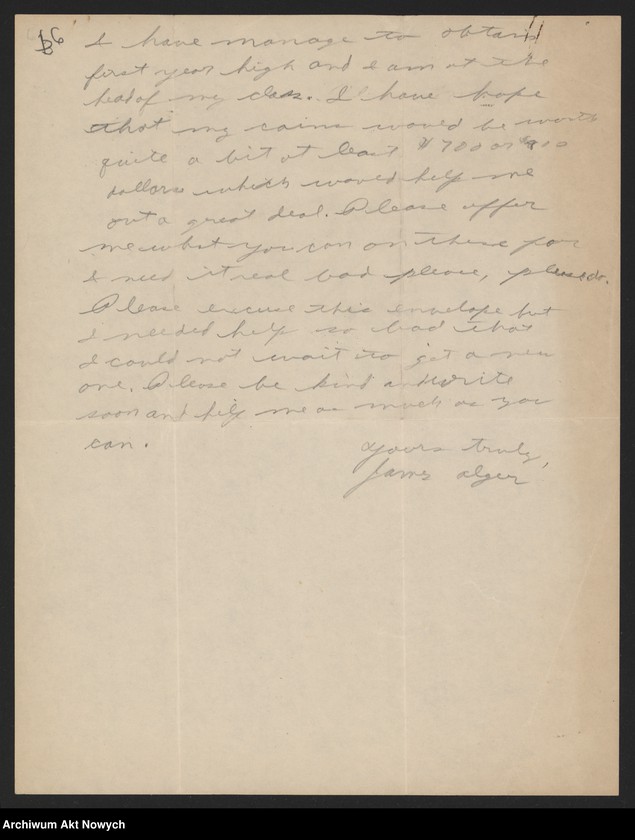 I have manage to obtain
first year high and I am at the
head of my class. I have hope
that my coins would be worth
quite a bit at least $700 or $900
dollars which would help me
out a great deal. Please offer
me what you can on these for
I need it real bad please, please do.
Please excuse this envelope but
I needed help so bad that
I could not wait to get a new
one. Please be kind and write
soon and help me as much as you
can.
Yours truly,
James Alger
Archiwum Akt Nowych